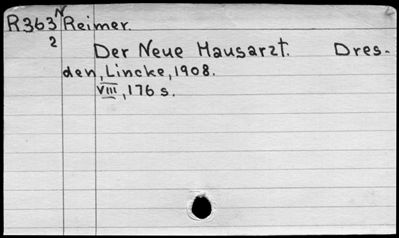 R363N Reimer.
2
Der Neue Hausarzt. Dres-
den, Lincke, 1908.
VIII, 176 s.